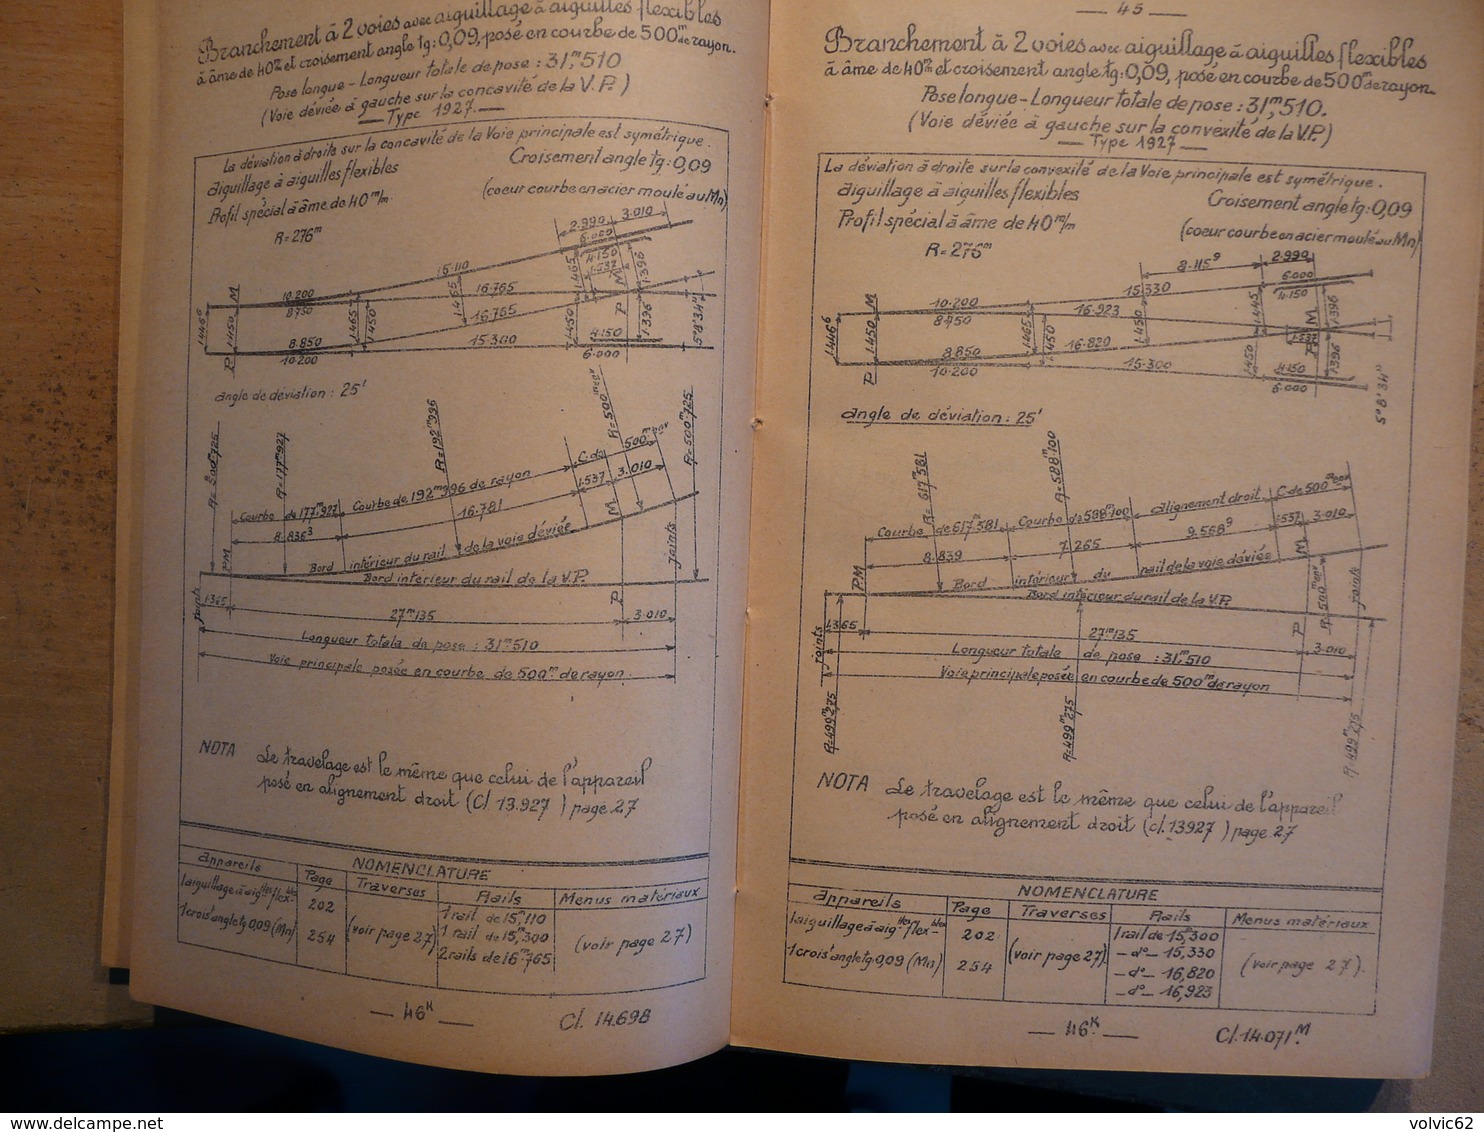 Branchement à 2 voies avec aiguillage à aiguilles flexibles
à âme de 40 m/m et croisement angle tg: 0,09, posé en courbe de 500m de rayon.
Pose longue - Longueur totale de pose : 31m,510
(Voie déviée à gauche sur la concavité de la V.P.)
— Type 1927. —
La déviation à droite sur la concavité de la Voie principale est symétrique.
aiguillage à aiguilles flexibles
Croisement angle tg: 0,09
Profil spécial à âme de 40 m/m.
(coeur courbe en acier moulé au Mn)
R = 276m
2.990
3.010
6.000
4.150
15.110
16.765
10.200
8.750
16.765
8.850
10.200
15.300
4.150
6.000
5°8'34"
angle de déviation : 25'
R=500m725
R=177m927
R=192m996
R=500m725
Courbe de 177m927
Courbe de 192m996 de rayon
8.836³
16.781
1.537
3.010
Bord intérieur du rail de la voie déviée
Bord intérieur du rail de la V.P.
joints
PM
1.365
27m135
3.010
joints
Longueur totale de pose : 31m510
Voie principale posée en courbe de 500m de rayon.
NOTA Le travelage est le même que celui de l'appareil
posé en alignement droit (Cl 13.927) page 27
NOMENCLATURE
appareils Page Traverses Rails Menus matériaux
1 aiguillage à aiglles flexbles 202 (voir page 27) 1 rail de 15m110 (voir page 27)
1 crois' angle tg 0,09 (Mn) 254 1 rail de 15m,300
2 rails de 16m765
— 46K —
Cl. 14.698
— 45 —
Branchement à 2 voies avec aiguillage à aiguilles flexibles
à âme de 40 m/m et croisement angle tg: 0,09, posé en courbe de 500m de rayon.
Pose longue - Longueur totale de pose : 31m,510.
(Voie déviée à gauche sur la convexité de la V.P.)
— Type 1927 —
La déviation à droite sur la convexité de la Voie principale est symétrique.
aiguillage à aiguilles flexibles
Croisement angle tg: 0,09
Profil spécial à âme de 40 m/m
(coeur courbe en acier moulé au Mn)
R = 276m
8.115⁹
2.990
6.000
4.150
15.330
10.200
8.750
16.923
8.850
10.200
16.820
15.300
4.150
6.000
5°8'34"
angle de déviation : 25'
R=617m581
R=588m100
Courbe de 617m581
Courbe de 588m100
alignement droit
8.839
7.265
9.568⁹
1.537
3.010
Bord intérieur du rail de la voie déviée
Bord intérieur du rail de la V.P.
PM
joints
1.365
27m135
3.010
joints
Longueur totale de pose : 31m,510
Voie principale posée en courbe de 500m de rayon
R=499m275
R=499m275
R=499m275
NOTA Le travelage est le même que celui de l'appareil
posé en alignement droit (cl. 13927) page 27
NOMENCLATURE
appareils Page Traverses Rails Menus matériaux
1 aiguillage à aiglles flexbles 202 (voir page 27) 1 rail de 15m,300 (voir page 27).
1 crois' angle tg 0,09 (Mn) 254 — d° — 15,330
— d° — 16,820
— d° — 16,923
— 46K —
Cl. 14.071.M
volvic62